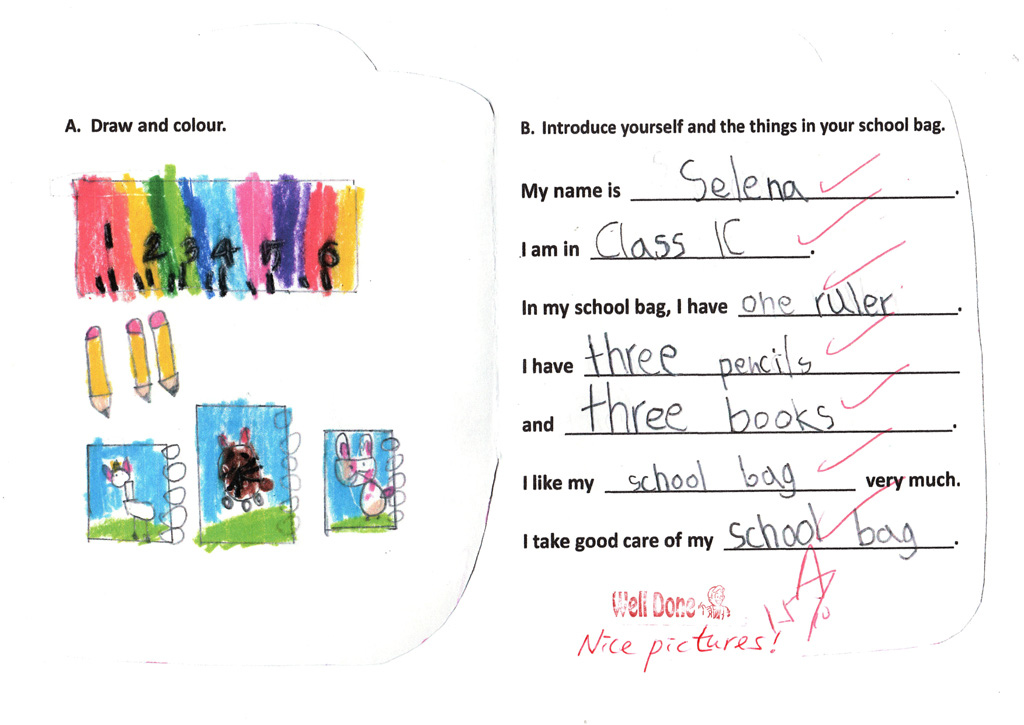 A. Draw and colour.
1 2 3 4 5 6
B. Introduce yourself and the things in your school bag.
My name is Selena.
I am in Class 1C.
In my school bag, I have one ruler.
I have three pencils
and three books.
I like my school bag very much.
I take good care of my school bag.
A
Well Done
Nice pictures!